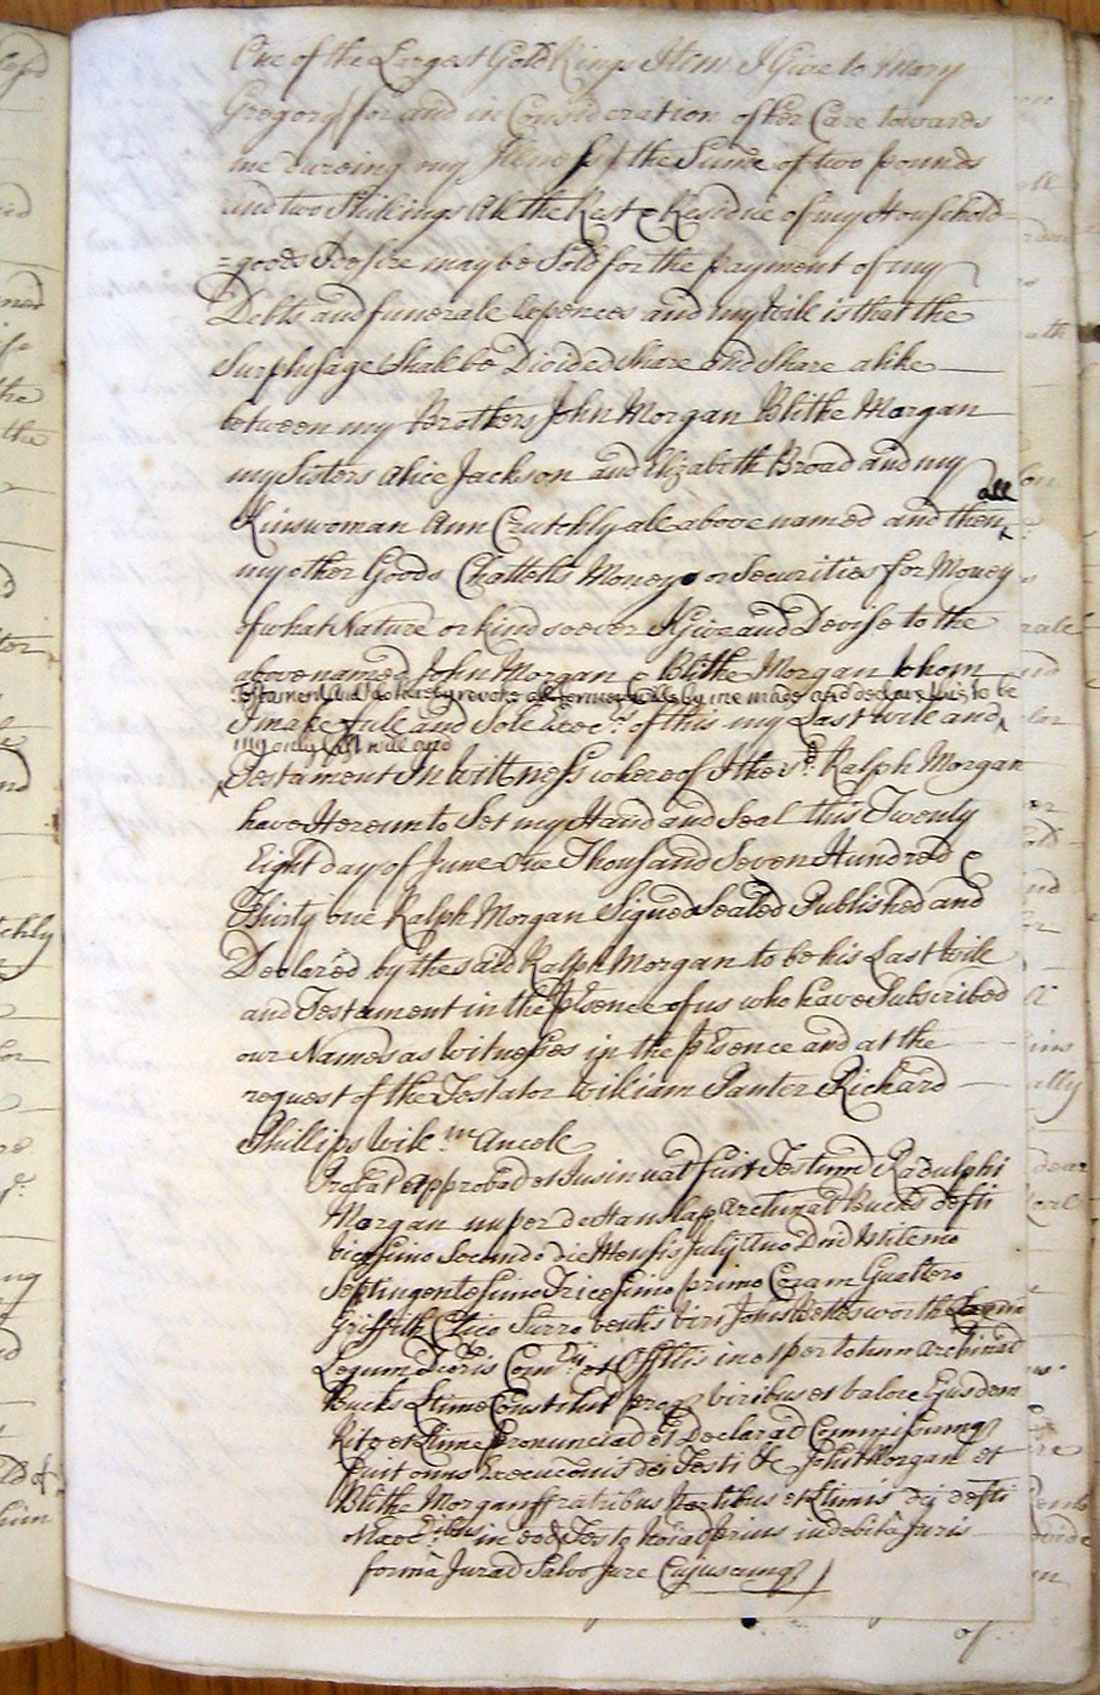 One of the Largest Gold Rings Item I Give to Mary
Gregory for and in Consideration of her Care towards
me dureing my Illness the Sume of two pounds
and two Shillings All the Rest & Residue of my Household=
=goods I desire may be Sold for the payment of my
Debts and funerale Expences and my Will is that the
Surplusage Shall be Divided Share and Share alike
between my Brothers John Morgan Blithe Morgan
my Sisters Alice Jackson and Elizabeth Broad and my
all
Kinswoman Ann Crutchly all above named and then
my other Goods Chattells Moneys or Securities for Money
of what Nature or kind soever I Give and Devise to the
above named John Morgan & Blithe Morgan whom
Testament and do hereby revoke all former wills by me made and declare this to be
I make full and Sole Exec.rs of this my Last Will and
my only last will and
Testament In Wittness whereof I the s.d Ralph Morgan
have Hereunto Set my Hand and Seal this Twenty
Eight day of June One Thousand Seven Hundred &
Thirty one Ralph Morgan Signed Sealed Published and
Declared by the said Ralph Morgan to be his Last Will
and Testament in the pSence of us who have Subscribed
our Names as Witnesses in the pSence and at the
request of the Testator William Panter Richard
Phillips Will.m Ancole
Probat approbad et Insinuat fuit Testum Radulphi
Morgan nuper de Hanslap Archinat Bucks defti
vicesimo Secundo die Mensis Julij Ano Dni Milemo
Septingentesimo Tricesimo primo Coram Gualtero
Griffith Clico Surro venlis viri Johis Bettesworth
Legum Dcoris Com.rij et Offilis in et per totum Archinat
Bucks Ltime Constitut proq viribus et valore Ejusdem
Rite et Ltime pronunciad et Declarad Commissumq
fuit onus Execuconis dci Testi &c Johi Morgan et
Blithe Morgan ffratribus et Ltimis dci defti
Execribus in eod Testo noiad prius in debita Juris
forma Jurad Salvo Jure Cujuscumq
of